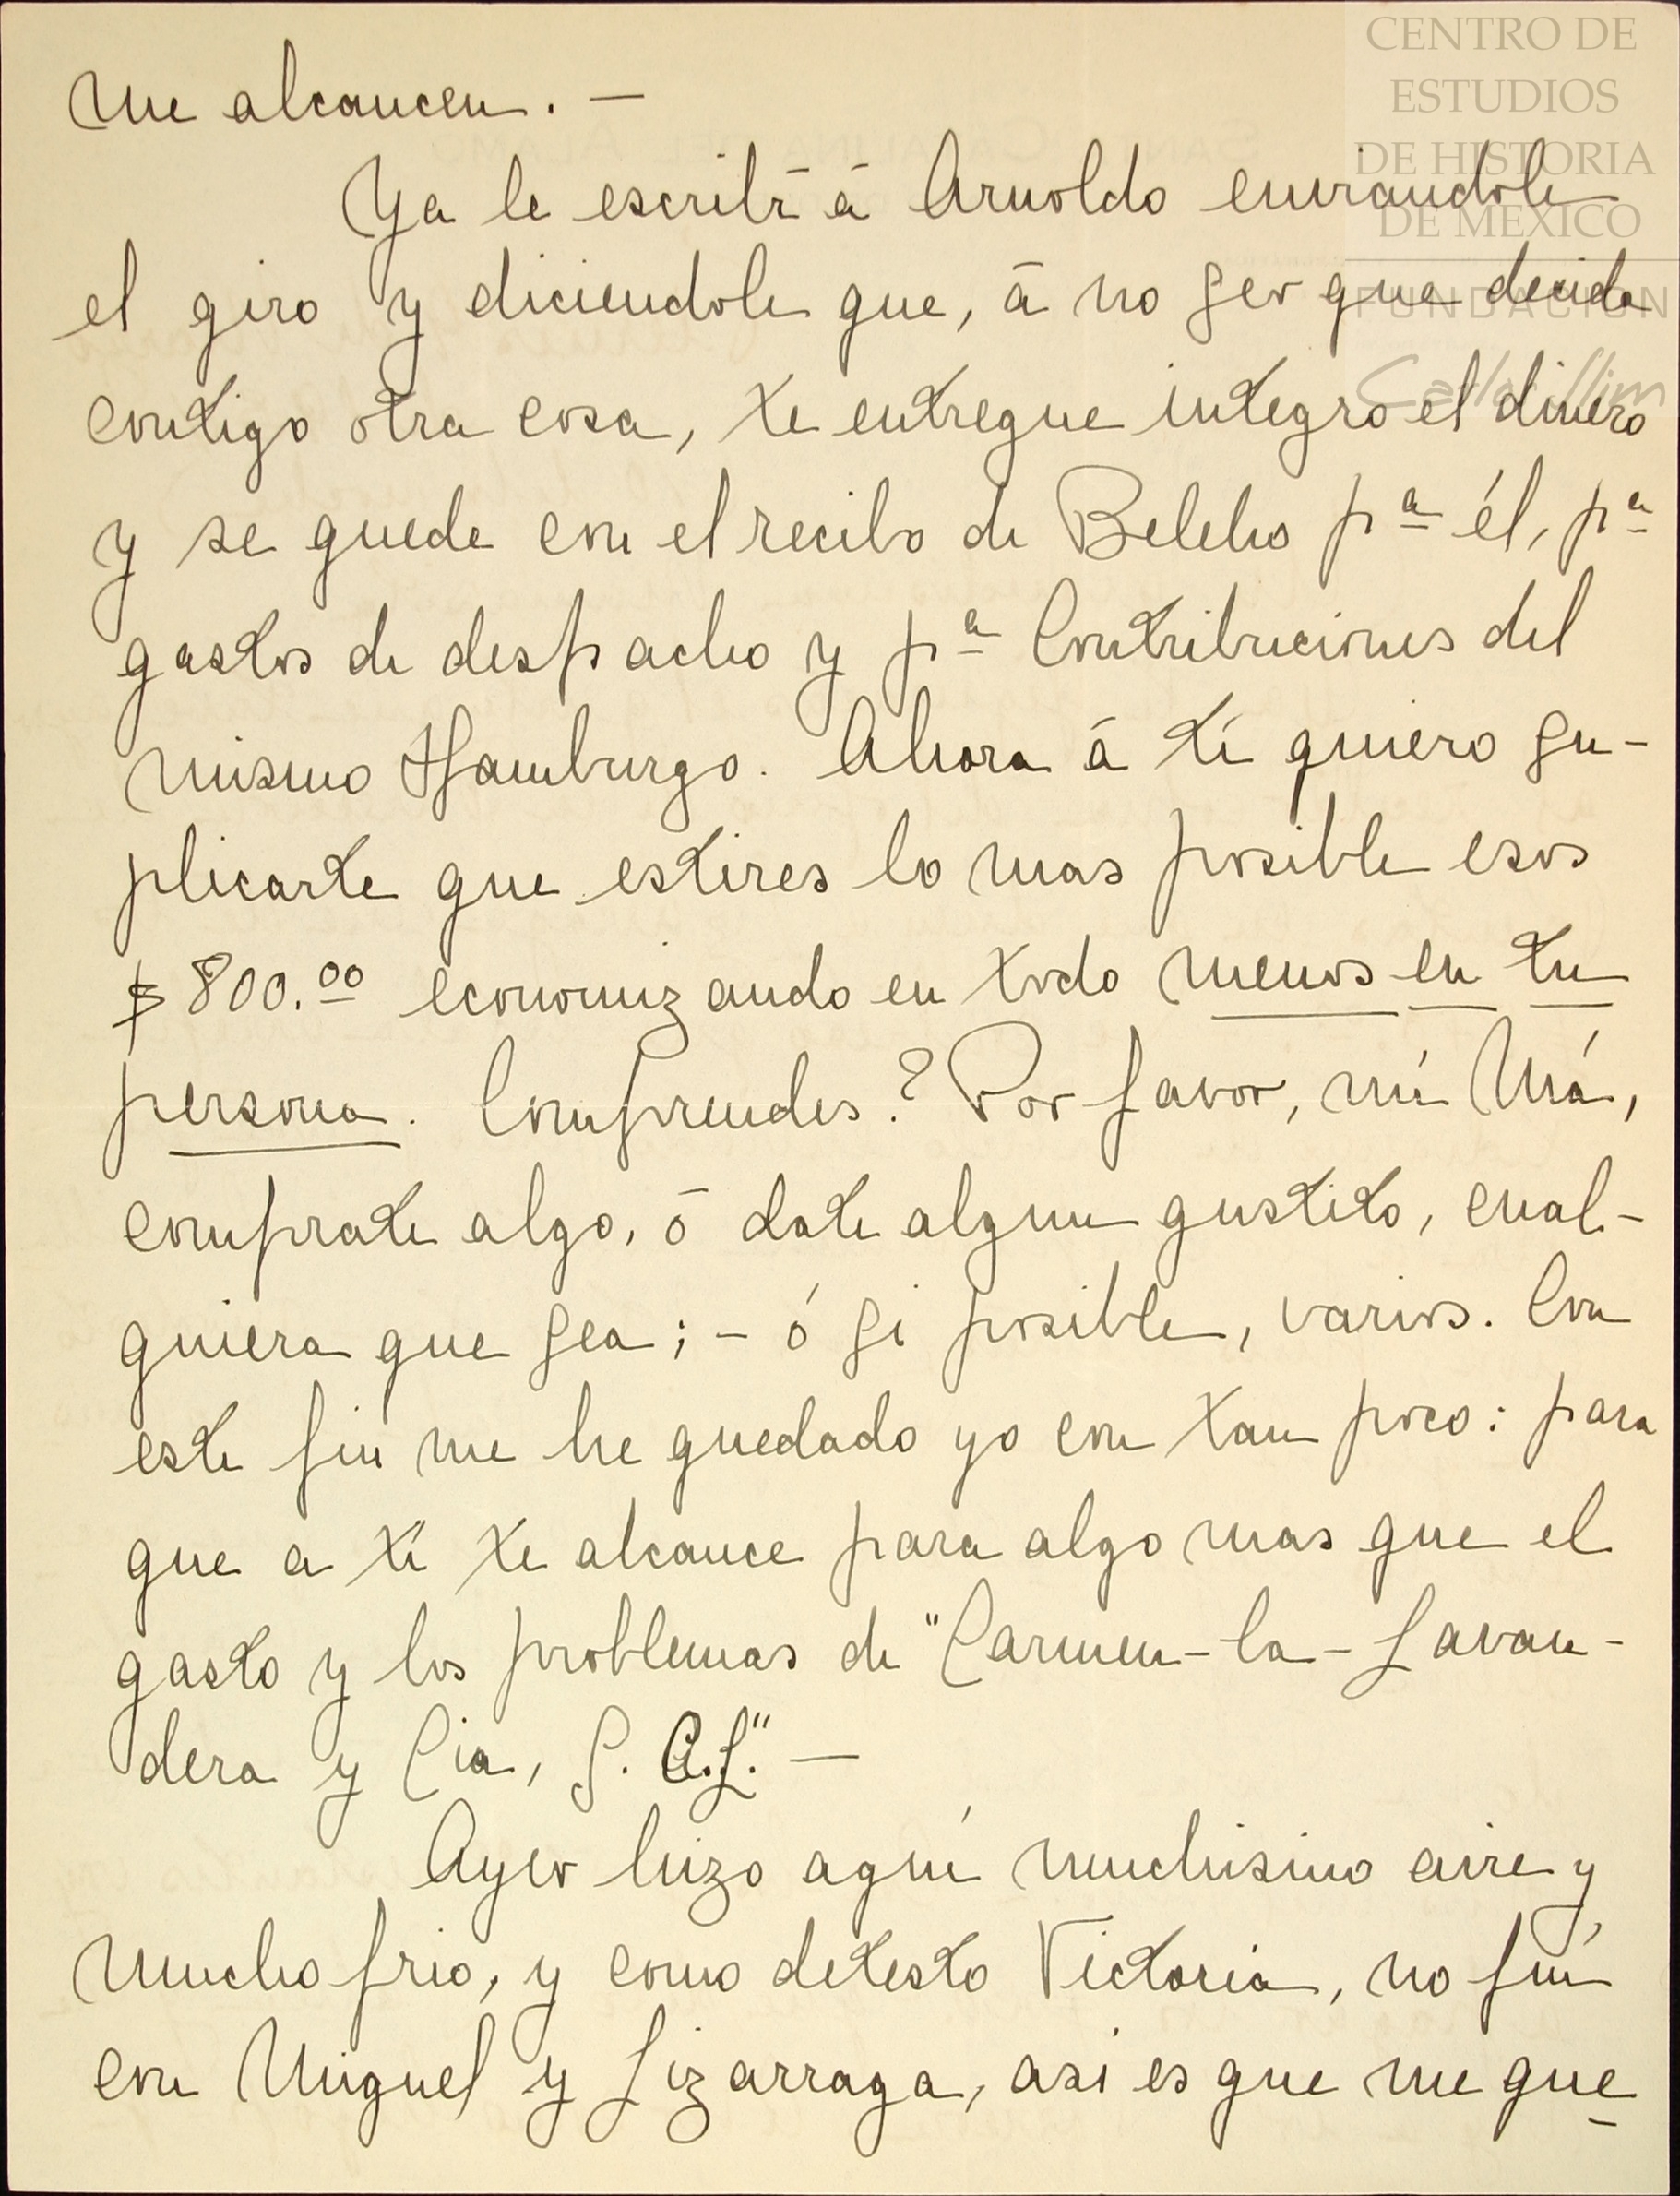 CENTRO DE
ESTUDIOS
DE HISTORIA
DE MÉXICO
FUNDACIÓN
Carlos Slim
me alcancen. —
Ya le escribí á Arnoldo enviandole
el giro y diciendole que, á no ser que decida
contigo otra cosa, te entregue integro el dinero
y se quede con el recibo de Belcho pª él, pª
gastos de despacho y pª Contribuciones del
mismo Hamburgo. Ahora á tí quiero su-
plicarte que estires lo mas posible esos
$800.00 economizando en todo menos en tu
persona. Comprendes? Por favor, mi Má,
comprate algo, ó date algun gustito, cual-
quiera que sea; – ó si posible, varios. Con
este fin me he quedado yo con tan poco: para
que a tí te alcance para algo mas que el
gasto y los problemas de "Carmen-la-Lavan-
dera y Cia, S. C.L." —
Ayer hizo aquí muchisimo aire y
mucho frio, y como detesto Victoria, no fuí
con Miguel y Lizarraga, asi es que me que